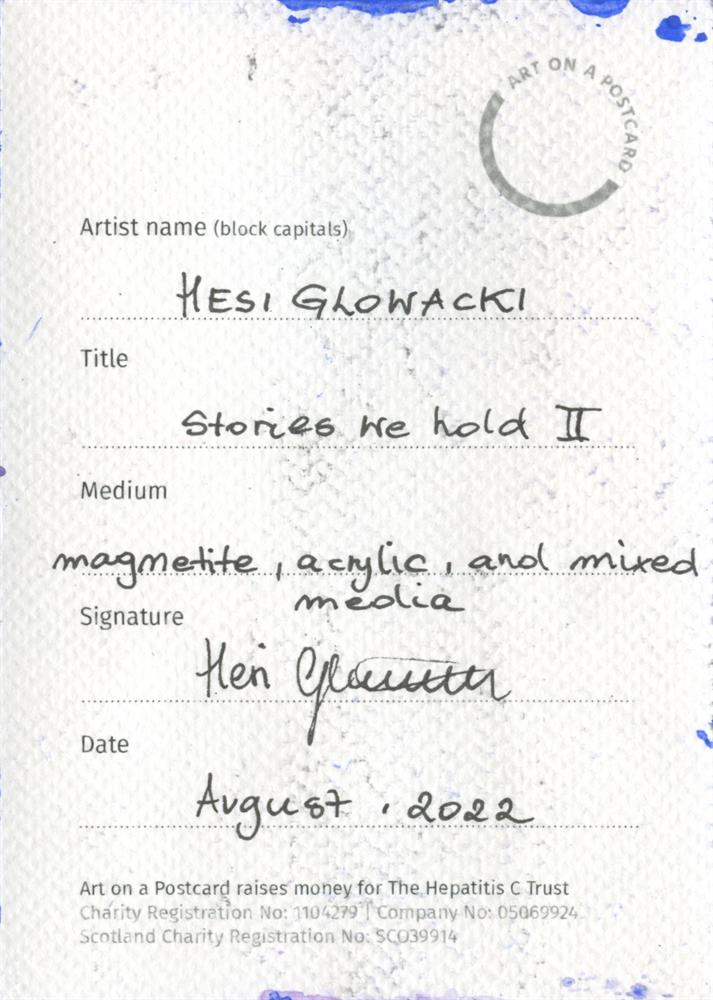 ART ON A POSTCARD
Artist name (block capitals)
HESI GLOWACKI
Title
Stories we hold II
Medium
magnetite, acrylic, and mixed
media
Signature
Hesi
Date
August, 2022
Art on a Postcard raises money for The Hepatitis C Trust
Charity Registration No: 1104279 | Company No: 05069924
Scotland Charity Registration No: SC039914